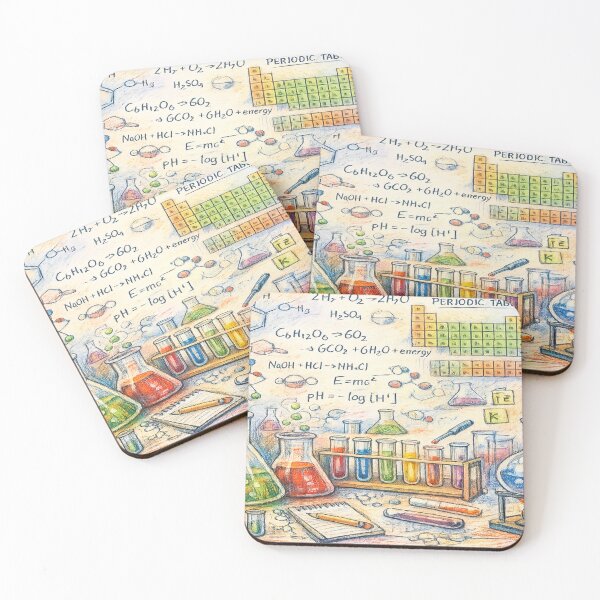 2H₂ + O₂→2H₂O PERIODIC TAB
H₂SO₄
C₆H₁₂O₆→6O₂
→ GCO₂ + GH₂O + energy
NaOH + HCl→NH₄Cl
E=mc²
pH = - log [H']
2H₂ + O₂→2H₂O PERIODIC TAB
O-H₃ H₂SO₄
C₆H₁₂O₆→6O₂
→ GCO₂ + GH₂O + energy
NaOH + HCl→NH₄Cl
E=mc²
pH = - log [H']
K
2H₂ + O₂→2H₂O PERIODIC TAB
O-H₃ H₂SO₄
C₆H₁₂O₆→6O₂
→ GCO₂ + GH₂O + energy
NaOH + HCl→NH₄Cl
E=mc²
pH = - log [H']
2H₂ + O₂→2H₂O PERIODIC TAB
O-H₃ H₂SO₄
C₆H₁₂O₆→6O₂
→ GCO₂ + GH₂O + energy
NaOH + HCl→NH₄Cl
E=mc²
pH = - log [H']
K